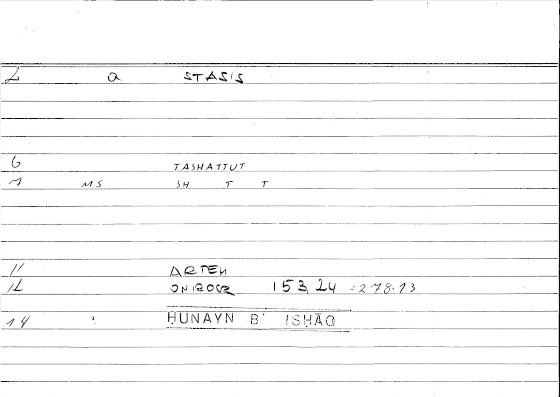 2 a STASIS
6 TASHATTUT
7 MS SH T T
11 ARTEM
12 ONIROCR 153,24 =278.13
14 HUNAYN B' ISHĀQ